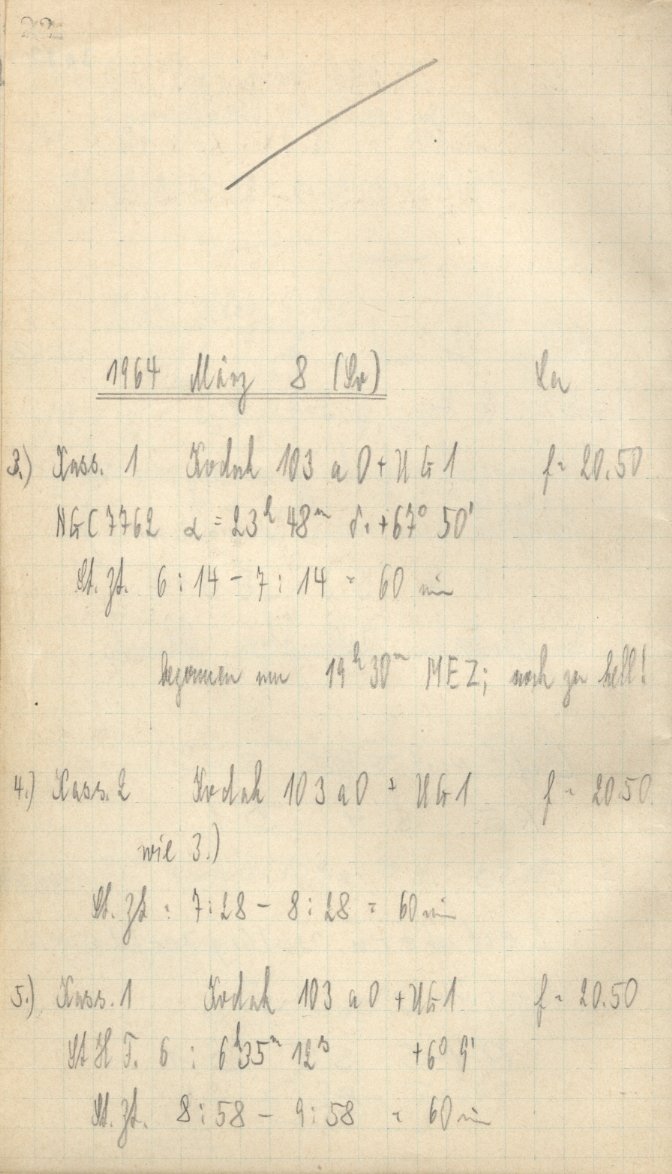 22
1964 März 8 (So)
3.) Kass. 1 Kodak 103 a O + UG 1 f = 20.50
NGC 7762 α = 23ʰ 48ᵐ δ = +67° 50'
St. Zt. 6 : 14 - 7 : 14 = 60 min
begonnen um 19ʰ 30ᵐ MEZ; noch zu hell!
4.) Kass. 2 Kodak 103 a O + UG 1 f = 20.50
wie 3.)
St. Zt : 7 : 28 - 8 : 28 = 60 min
5.) Kass. 1 Kodak 103 a O + UG 1 f = 20.50
6 : 6ʰ 35ᵐ 12ˢ +6° 9'
St. Zt. 8 : 58 - 9 : 58 = 60 min